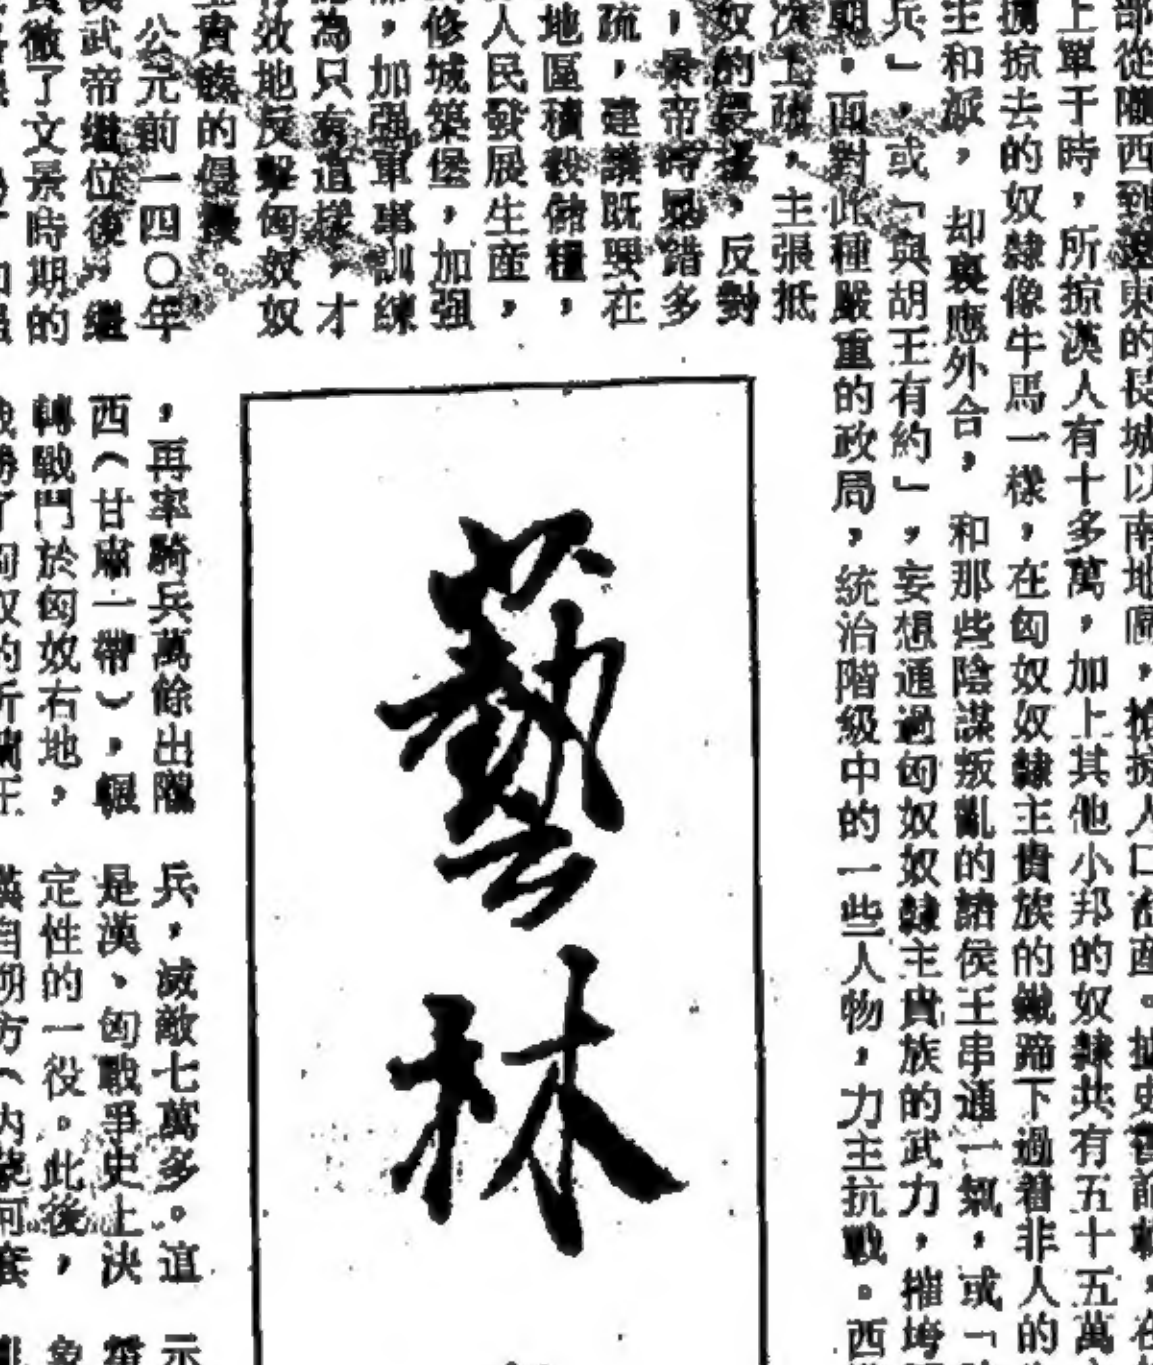 部從隴西到遼東的長城以南地區，搶掠人口畜產。據史書前載，在
上單于時，所掠漢人有十多萬，加上其他小邦的奴隸共有五十五萬
擄掠去的奴隸像牛馬一樣，在匈奴奴隸主貴族的鐵蹄下過着非人的
主和派，却裏應外合，和那些陰謀叛亂的諸侯王串通一氣，或「
兵」，或「與胡王有約」，妄想通過匈奴奴隸主貴族的武力，摧垮
朝。面對此種嚴重的政局，統治階級中的一些人物，力主抗戰。西
，主張抵
奴的侵擾，反對
，景帝時晁錯多
疏，建議既要在
地區積穀儲糧，
人民發展生産，
修城築堡，加强
，加强軍事訓練
為只有這樣，才
效地反擊匈奴奴
主貴族的侵擾。
公元前一四〇年
漢武帝繼位後，繼
貫徹了文景時期的
藝林
，再率騎兵萬餘出隴
西（甘肅一帶），輾
轉戰鬥於匈奴右地，
戰勝了匈奴的折蘭王
兵，滅敵七萬多。這
是漢、匈戰爭史上決
定性的一役。此後，
漢自朔方（內蒙河套
示
象